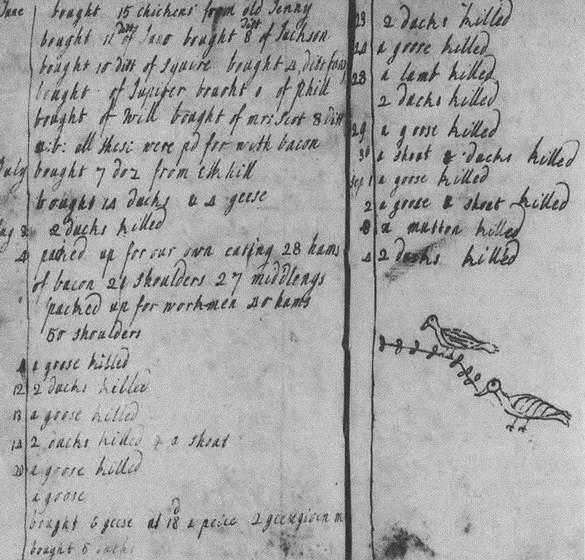 June bought 15 chickens from old Jenny
bought 11 ditt of Jano bought 8 ditt of Jackson
bought 10 ditt of Squire bought 4 ditt
bought of Jupiter bought of Phill
bought of Will bought of mrs Scot 8 ditt
n:b: all these were pd for with bacon
July bought 7 doz from elkhill
bought 14 ducks & 4 geese
2 ducks killed
4 packed up for our own eating 28 hams
of bacon 21 shoulders 27 middlengs
packed up for workmen 40 hams
50 shoulders
4 a goose killed
12 2 ducks killed
13 a goose killed
14 2 ducks killed & a shoat
20 a goose killed
a goose
bought 6 geese at 18d a peice 2 geese given
bought 5
23 2 ducks killed
24 a goose killed
28 a lamb killed
2 ducks killed
29 a goose killed
30 a shoat & ducks killed
sep 1 a goose killed
2 a goose & shoat killed
a mutton killed
4 2 ducks killed